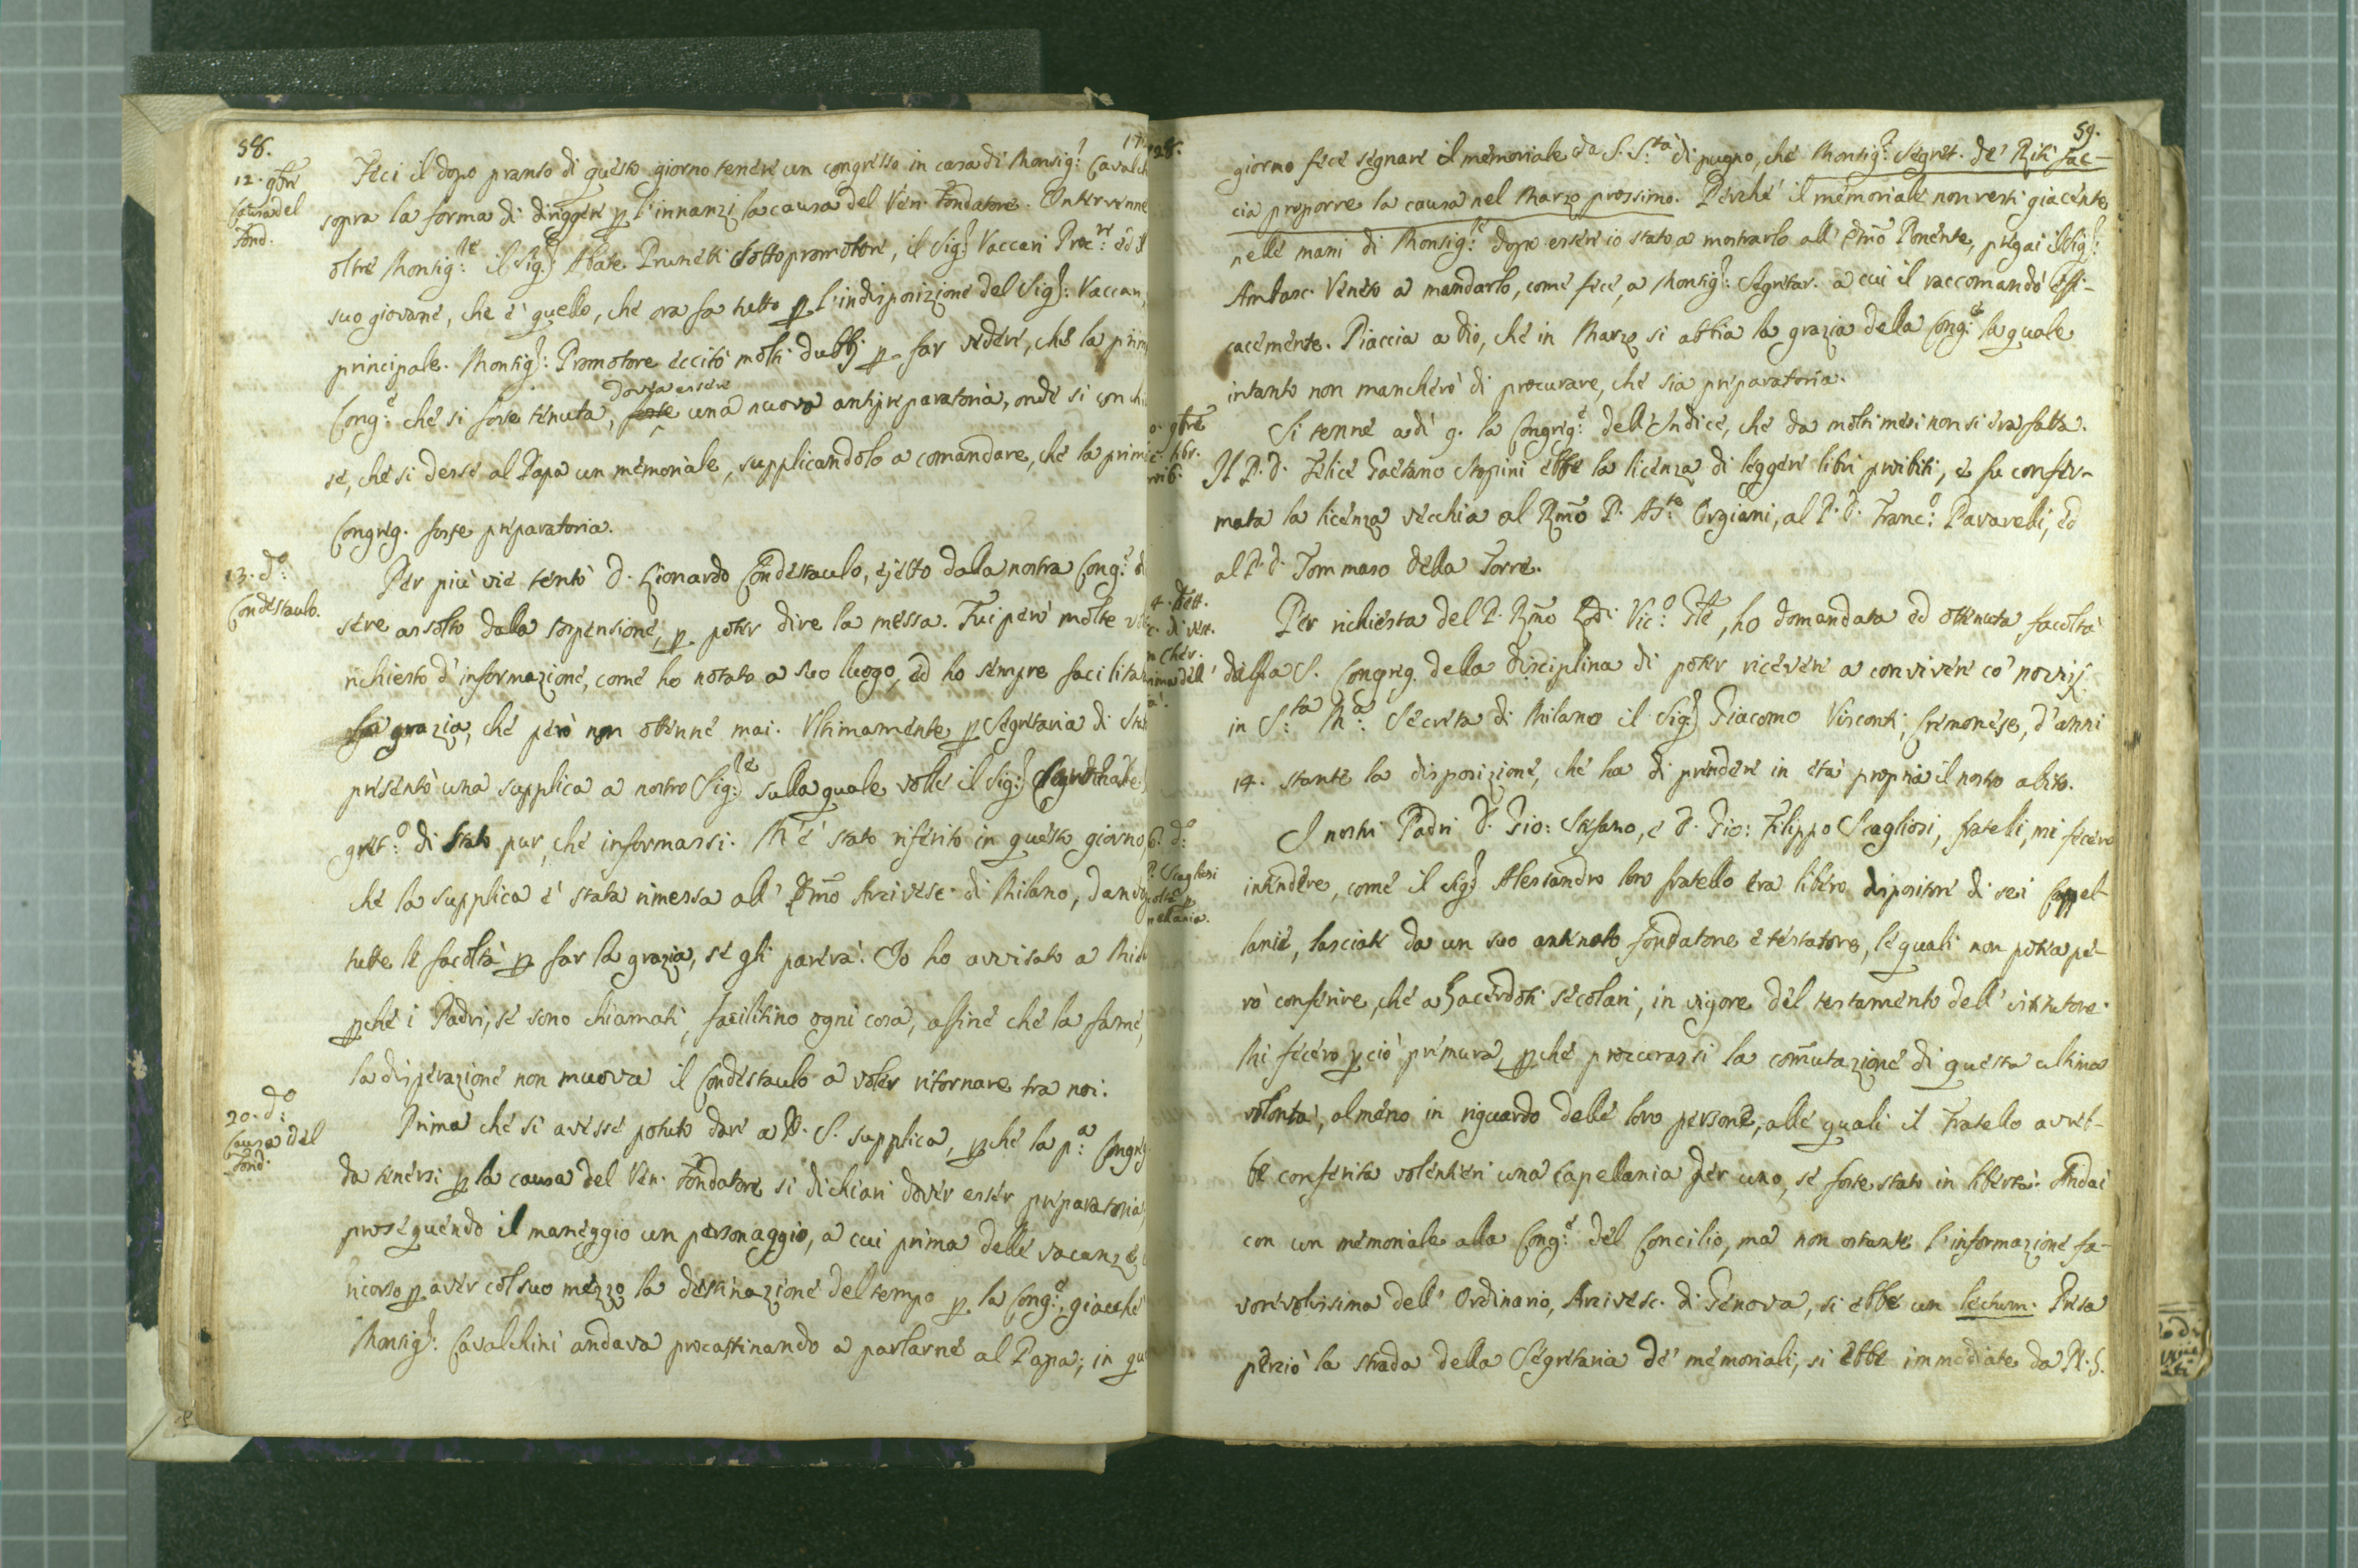 58.
12. 9bre
Causa del
Fond.
Feci il dopo pranso di questo giorno tenere un congresso in casa di Monsig.r Cavalch
sopra la forma di diriggere p l'innanzi la causa del Ven. Fondatore. Intervenne
oltre Monsig.re il Sig.r Abate Prunetti sottopromotore, il Sig.r Vaccari Proc.re ed il
suo giovane, che è quello, che ora fa tutto p l'indisposizione del Sig.r Vaccari,
principale. Monsig.r Promotore eccitò molti dubbj p far vedere, che la prim
dovea essere
Cong.e che si fosse tenuta, fosse una nuova antipreparatoria, onde si conchiu
se, che si desse al Papa un memoriale, supplicandolo a comandare, che la prim
Congreg. fosse preparatoria.
13. d.o
Condestaulo.
Per più vie tentò D. Lionardo Condestaulo, ejetto dalla nostra Cong.e d
sere assolto dalla sospensione, p poter dire la messa. Fui però molte vo
richiesto d'informazione, come ho notato a suo luogo, ed ho sempre facilita
la grazia, che però non ottenne mai. Ultimamente p Segretaria di Sta
presentò una supplica a nostro Sig.re sulla quale volle il Sig.r
gret.o di Stato pur, che informassi. M'è stato riferito in questo giorno,
che la supplica è stata rimessa all' Emo Arcivesc. di Milano, dando
tutte le facoltà p far la grazia, se gli parerà. Io ho avvisato a Mila
pchè i Padri, se sono chiamati, facilitino ogni cosa, affine che la fame,
la disperazione non muova il Condestaulo a voler ritornare tra noi.
20. d.o
Causa del
Fond.
Prima che si avesse potuto dare a N. S. supplica, pchè la p.a Congreg
da tenersi p la causa del Ven. Fondatore si dichiari dover esser preparatoria,
proseguendo il maneggio un personaggio, a cui prima delle vacanze
ricorso p aver col suo mezzo la destinazione del tempo p la Cong.e, giacchè
Monsig.r Cavalchini andava procastinando a parlarne al Papa; in qu
59.
giorno fece segnare il memoriale da S. S.tà di pugno, che Monsig.r Segret. de' Riti fac-
cia proporre la causa nel Marzo prossimo. Perchè il memoriale non resti giacente
nelle mani di Monsig.re dopo esser io stato a mostrarlo all' Emo Ponente, pregai il Sig.r
Ambasc. Veneto a mandarlo, come fece, a Monsig.r Segretar. a cui il raccomandò effi-
cacemente. Piaccia a Dio, che in Marzo si abbia la grazia della Cong.e la quale
intanto non mancherò di procurare, che sia preparatoria.
9bre
libr.
Si tenne adì 9. la Congreg.e dell'Indice, che da molti mesi non si era fatta.
Il P. D. Felice Gaetano Stopini ebbe la licenza di leggere libri proibiti, e fu confer-
mata la licenza vecchia al Rmo P. Ass.te Orgiani, al P. D. Franc.o Pavarelli, ed
al P. D. Tommaso della Torre.
di vest.
Per richiesta del P. Rmo Vic.o Gle, ho domandata ed ottenuta facoltà
dalla S. Congreg. della disciplina di poter ricevere a convivere co' novizj
in S.ta M.a Secreta di Milano il Sig.r Giacomo Visconti, Cremonese, d'anni
14. stante la disposizione, che ha di prendere in età propria il nostro abito.
d.o
P. Scagliosi
I nostri Padri D. Gio: Stefano, e D. Gio: Filippo Scagliosi, fratelli, mi fecero
intendere, come il Sig.r Alessandro loro fratello era libero dispositore di sei Cappel-
lanie, lasciate da un suo antenato fondatore e testatore, le quali non potea pe-
rò conferire, che a Sacerdoti secolari, in vigore del testamento dell' istitutore.
Mi fecero pciò premura, pchè procurassi la comutazione di questa ultima
volontà, almeno in riguardo delle loro persone, alle quali il Fratello avreb-
be conferita volentieri una capellania per uno, se fosse stato in libertà. Andai
con un memoriale alla Cong.e del Concilio, ma non ostante l'informazione fa-
vorevolissima dell' Ordinario, Arcivesc. di Genova, si ebbe un lectum. Presa
perciò la strada della Segretaria de' memoriali, si ebbe immediate da N. S.